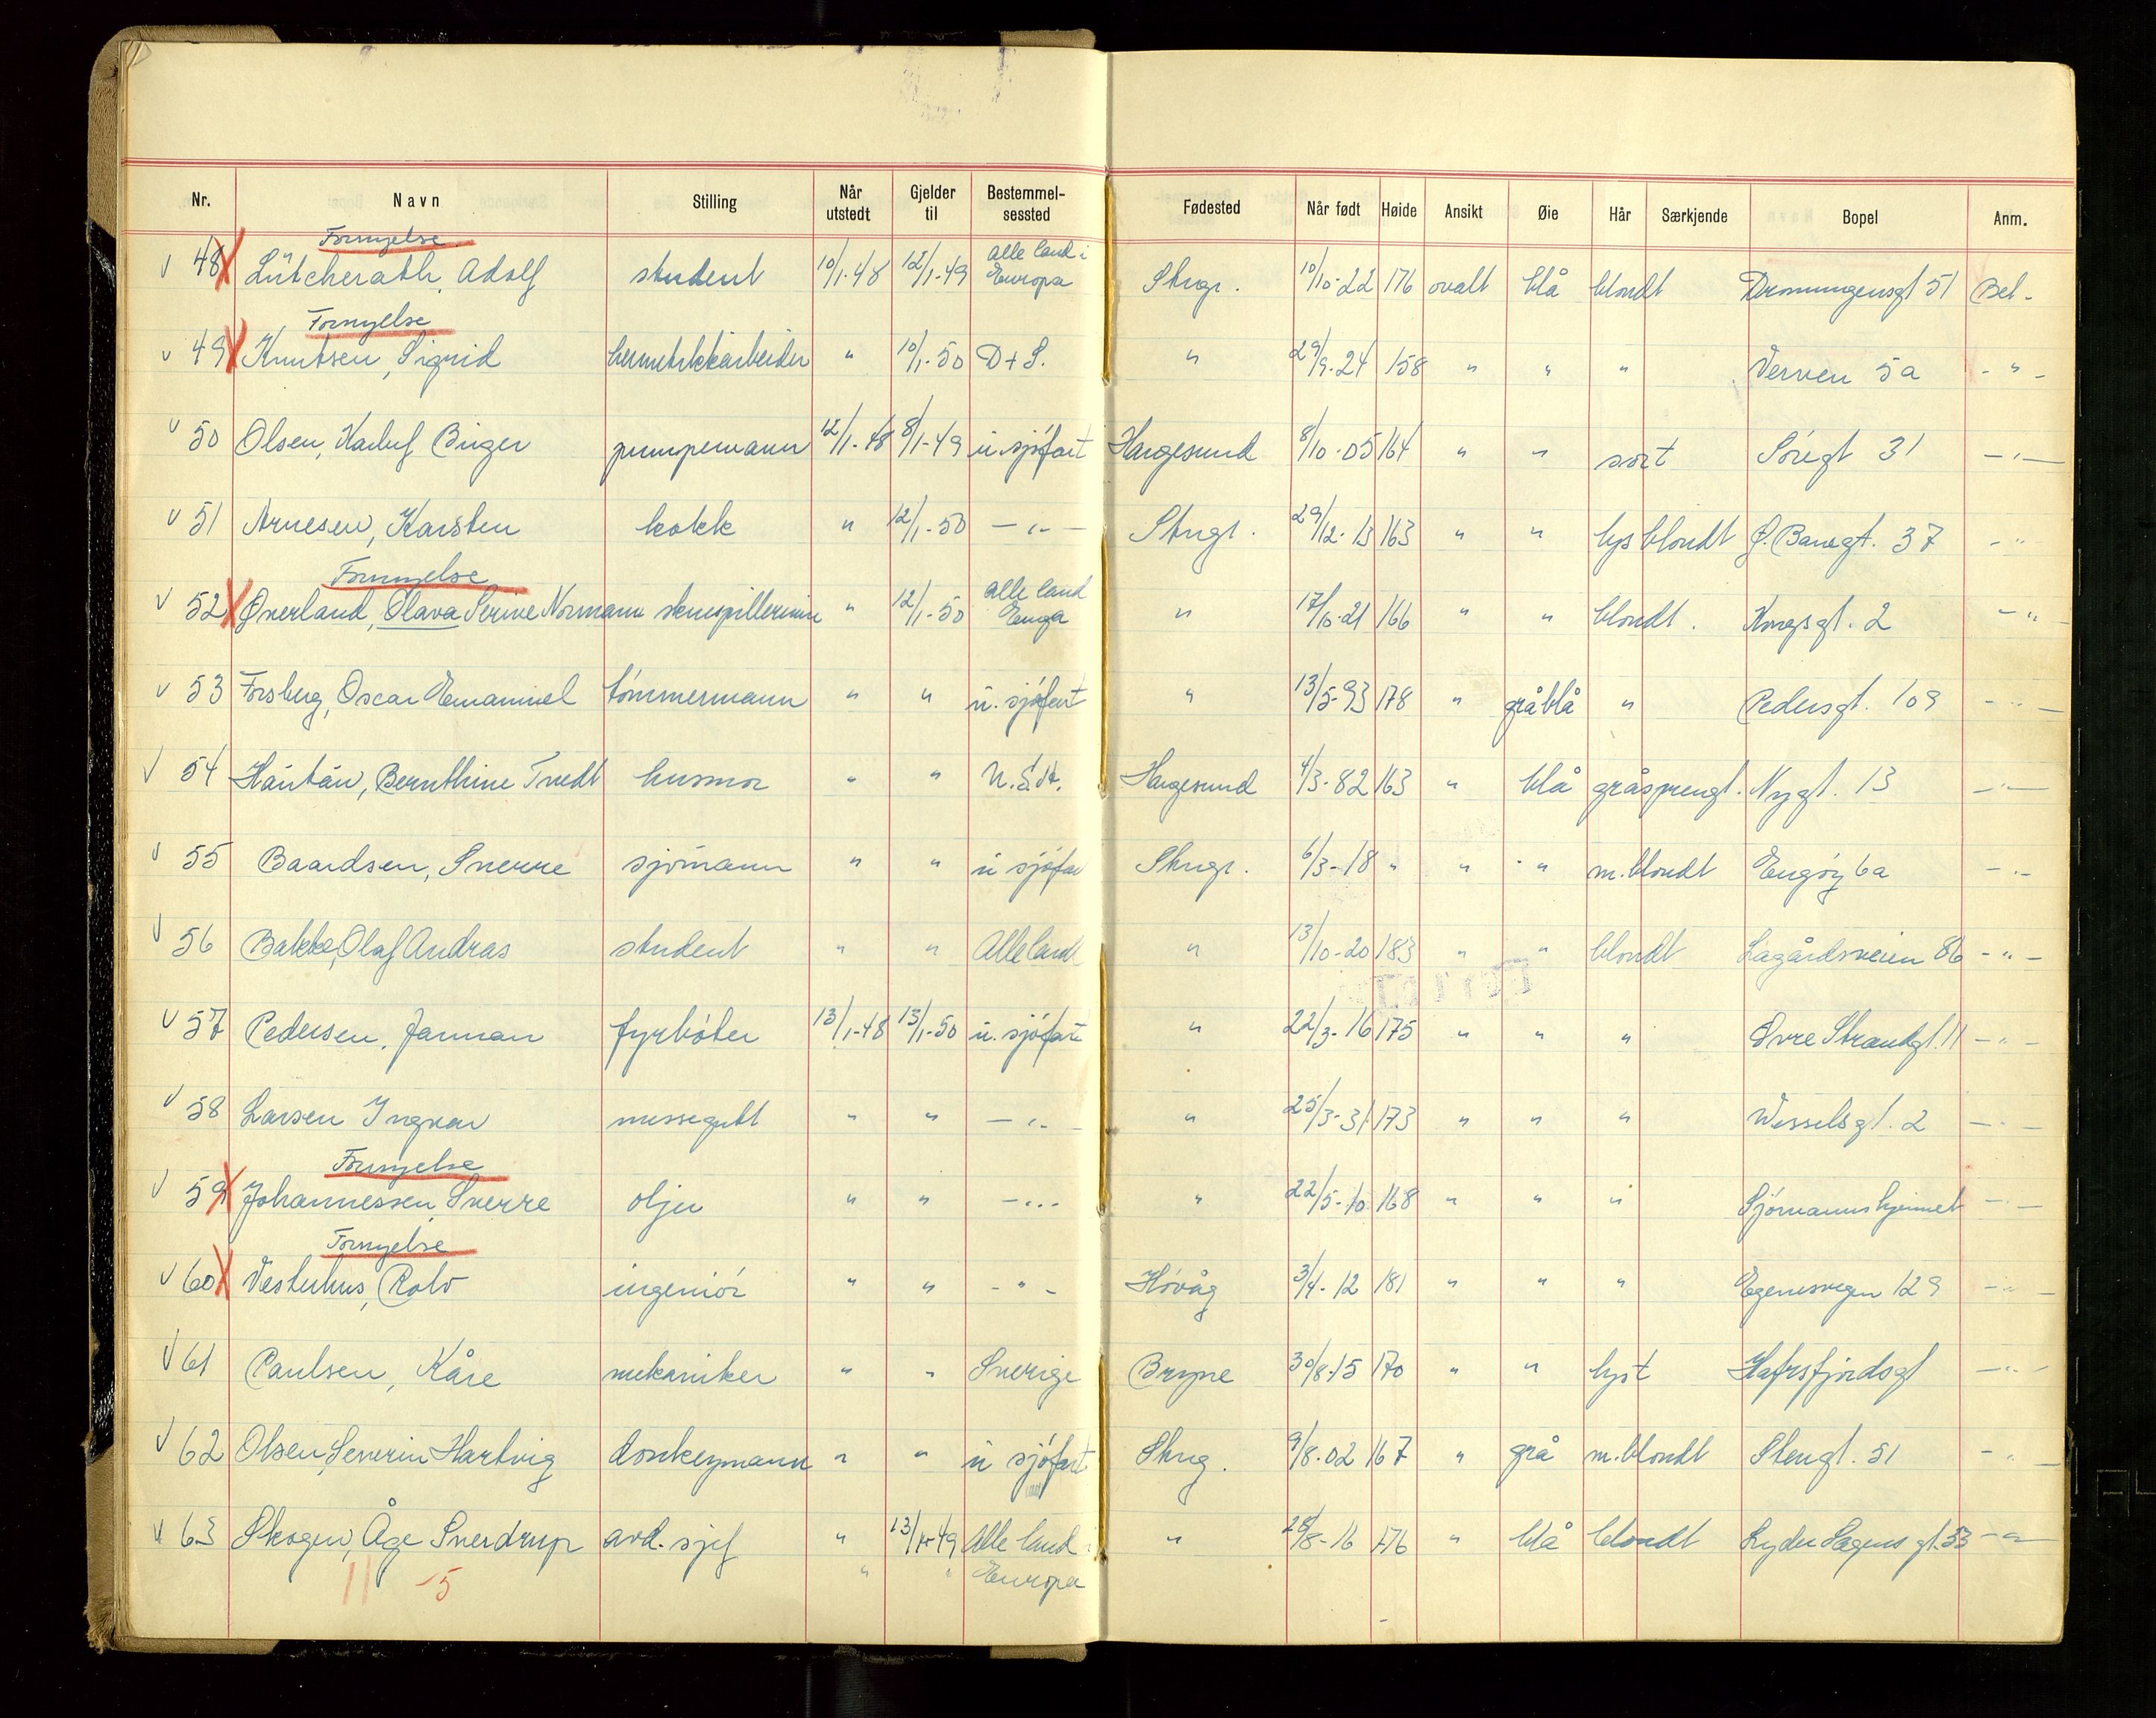 Nr. Navn Stilling Når utstedt Gjelder til Bestemmelsessted Fødested Når født Høide Ansikt Øie Hår Særkjende Bopel Anm.
Fornyelse
V 48 X Lütcherath, Adolf student 10/1-48 12/1-49 Alle land i Europa Stvgr. 10/10-22 176 ovalt blå blondt Dronningensgt 51 Bet.
Fornyelse
v 49 X Knutsen, Sigrid hermetikkarbeider " 10/1-50 D+S. " 29/9-24 158 " " " Verven 5a - " -
v 50 Olsen, Karluf Birger pumpemann 12/1-48 8/1-49 u. sjöfart Haugesund 8/10-05 164 " " sort Söregt 31 - " -
v 51 Arnesen, Karsten kokk " 12/1-50 - " - Stvgr. 29/12-13 163 " " lys blondt Ø. Banegt. 37 - "
Fornyelse
V 52 X Øverland, Olava Serine Normann skuespillerinne " 12/1-50 alle land Europa " 17/10-21 166 " " blondt. Kongsgt. 2 - "
v 53 Forsberg, Oscar Emanuel tömmermann " " u. sjöfart " 13/5-93 178 " gråblå " Pedersgt. 109 - " -
V 54 Häntän, Bernthine Tvedt husmor " " U.S.A. Haugesund 4/3-82 163 " blå gråsprengt. Nygt. 13 - " -
V 55 Baardsen, Sverre sjömann " " u sjöfar Stvgr. 6/3-18 " " " m.blondt Engöy 6a - " -
V 56 Bakke, Olaf Andras student " " Alle land " 13/10-20 183 " " blondt Lagårdsveien 86 - " -
V 57 Pedersen, Jarman fyrböter 13/1-48 13/1-50 u. sjöfart " 22/3-16 175 " " " Øvre Strandgt. 11 - " -
V 58 Larsen Ingvar messegutt " " - " - " 25/3-31 173 " " " Wesselsgt. 2 - " -
Fornyelse
V 59 X Johannessen, Sverre oljer " " - " - " 22/5-10 168 " " " Sjömannshjemmet - " -
Fornyelse
V 60 X Vesterhus, Rolv ingeniör " " - " - Hövåg 3/4-12 181 " " " Egenesvegen 129 - " -
V 61 Paulsen, Kåre mekaniker " " Sverige Bryne 30/8-15 170 " " lyst Hafrsfjordsgt - " -
V 62 Olsen, Severin Hartvig donkeymann " " u sjöfart Stvg. 9/8-02 167 " grå m.blondt Stengt. 51 - " -
V 63 Skogen, Åge Sverdrup avd. sjef " 13/1-49 Alle land i " 28/8-16 176 " blå blondt Lyder Sagens gt. 33 - " -
" " Europa
11 -5